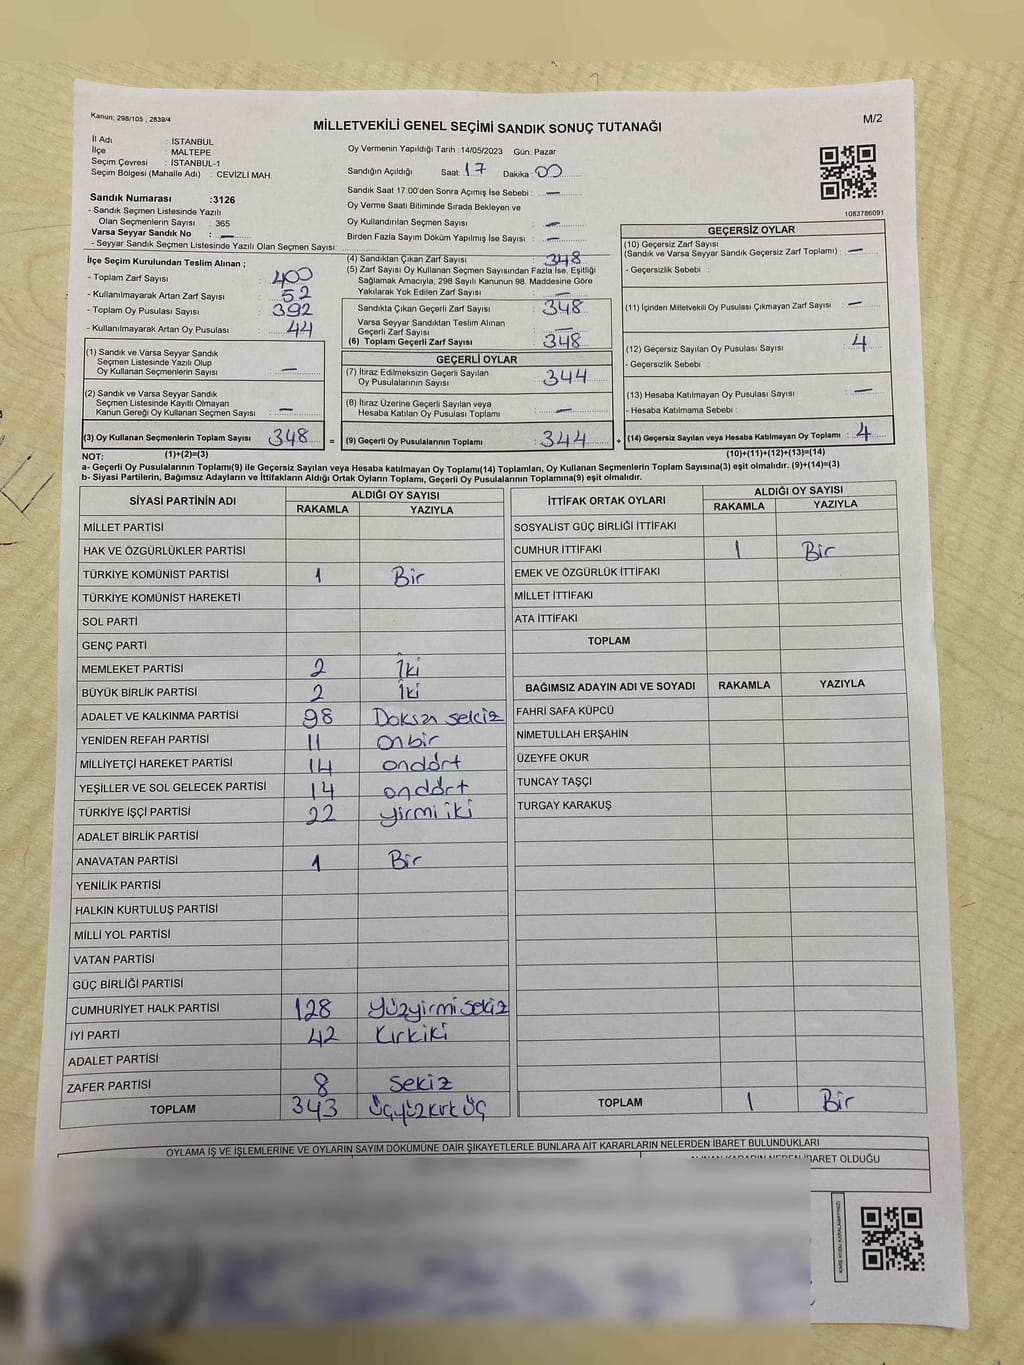 Kanun; 298/105 , 2839/4
MİLLETVEKİLİ GENEL SEÇİMİ SANDIK SONUÇ TUTANAĞI
M/2
İl Adı : İSTANBUL
İlçe : MALTEPE
Seçim Çevresi : İSTANBUL-1
Seçim Bölgesi (Mahalle Adı) : CEVİZLİ MAH.
Sandık Numarası :3126
- Sandık Seçmen Listesinde Yazılı
Olan Seçmenlerin Sayısı : 365
Varsa Seyyar Sandık No : —
- Seyyar Sandık Seçmen Listesinde Yazılı Olan Seçmen Sayısı:
Oy Vermenin Yapıldığı Tarih :14/05/2023 Gün: Pazar
Sandığın Açıldığı Saat: 17 Dakika : 00
Sandık Saat 17:00'den Sonra Açımış İse Sebebi : —
Oy Verme Saati Bitiminde Sırada Bekleyen ve
Oy Kullandırılan Seçmen Sayısı : —
Birden Fazla Sayım Döküm Yapılmış İse Sayısı : —
1083786091
İlçe Seçim Kurulundan Teslim Alınan ;
- Toplam Zarf Sayısı : 400
- Kullanılmayarak Artan Zarf Sayısı : 52
- Toplam Oy Pusulası Sayısı : 392
- Kullanılmayarak Artan Oy Pusulası : 44
(1) Sandık ve Varsa Seyyar Sandık
Seçmen Listesinde Yazılı Olup
Oy Kullanan Seçmenlerin Sayısı : —
(2) Sandık ve Varsa Seyyar Sandık
Seçmen Listesinde Kayıtlı Olmayan
Kanun Gereği Oy Kullanan Seçmen Sayısı : —
(3) Oy Kullanan Seçmenlerin Toplam Sayısı : 348
(1)+(2)=(3)
(4) Sandıktan Çıkan Zarf Sayısı : 348
(5) Zarf Sayısı Oy Kullanan Seçmen Sayısından Fazla İse, Eşitliği
Sağlamak Amacıyla; 298 Sayılı Kanunun 98. Maddesine Göre
Yakılarak Yok Edilen Zarf Sayısı : —
Sandıkta Çıkan Geçerli Zarf Sayısı : 348
Varsa Seyyar Sandıktan Teslim Alınan
Geçerli Zarf Sayısı : —
(6) Toplam Geçerli Zarf Sayısı : 348
GEÇERLİ OYLAR
(7) İtiraz Edilmeksizin Geçerli Sayılan
Oy Pusulalarının Sayısı : 344
(8) İtiraz Üzerine Geçerli Sayılan veya
Hesaba Katılan Oy Pusulası Toplamı : —
= (9) Geçerli Oy Pusulalarının Toplamı : 344
GEÇERSİZ OYLAR
(10) Geçersiz Zarf Sayısı
(Sandık ve Varsa Seyyar Sandık Geçersiz Zarf Toplamı) : —
- Geçersizlik Sebebi :
(11) İçinden Milletvekili Oy Pusulası Çıkmayan Zarf Sayısı : —
(12) Geçersiz Sayılan Oy Pusulası Sayısı : 4
- Geçersizlik Sebebi :
(13) Hesaba Katılmayan Oy Pusulası Sayısı : —
- Hesaba Katılmama Sebebi :
+ (14) Geçersiz Sayılan veya Hesaba Katılmayan Oy Toplamı : 4
(10)+(11)+(12)+(13)=(14)
NOT:
a- Geçerli Oy Pusulalarının Toplamı(9) ile Geçersiz Sayılan veya Hesaba katılmayan Oy Toplamı(14) Toplamları, Oy Kullanan Seçmenlerin Toplam Sayısına(3) eşit olmalıdır. (9)+(14)=(3)
b- Siyasi Partilerin, Bağımsız Adayların ve İttifakların Aldığı Ortak Oyların Toplamı, Geçerli Oy Pusulalarının Toplamına(9) eşit olmalıdır.
SİYASİ PARTİNİN ADI ALDIĞI OY SAYISI
RAKAMLA YAZIYLA
MİLLET PARTİSİ
HAK VE ÖZGÜRLÜKLER PARTİSİ
TÜRKİYE KOMÜNİST PARTİSİ 1 Bir
TÜRKİYE KOMÜNİST HAREKETİ
SOL PARTİ
GENÇ PARTİ
MEMLEKET PARTİSİ 2 İki
BÜYÜK BİRLİK PARTİSİ 2 İki
ADALET VE KALKINMA PARTİSİ 98 Doksan sekiz
YENİDEN REFAH PARTİSİ 11 onbir
MİLLİYETÇİ HAREKET PARTİSİ 14 ondört
YEŞİLLER VE SOL GELECEK PARTİSİ 14 ondört
TÜRKİYE İŞÇİ PARTİSİ 22 yirmi iki
ADALET BİRLİK PARTİSİ
ANAVATAN PARTİSİ 1 Bir
YENİLİK PARTİSİ
HALKIN KURTULUŞ PARTİSİ
MİLLİ YOL PARTİSİ
VATAN PARTİSİ
GÜÇ BİRLİĞİ PARTİSİ
CUMHURİYET HALK PARTİSİ 128 yüzyirmisekiz
İYİ PARTİ 42 kırkiki
ADALET PARTİSİ
ZAFER PARTİSİ 8 sekiz
TOPLAM 343 üçyüzkırküç
İTTİFAK ORTAK OYLARI ALDIĞI OY SAYISI
RAKAMLA YAZIYLA
SOSYALİST GÜÇ BİRLİĞİ İTTİFAKI
CUMHUR İTTİFAKI 1 Bir
EMEK VE ÖZGÜRLÜK İTTİFAKI
MİLLET İTTİFAKI
ATA İTTİFAKI
TOPLAM
BAĞIMSIZ ADAYIN ADI VE SOYADI RAKAMLA YAZIYLA
FAHRİ SAFA KÜPCÜ
NİMETULLAH ERŞAHİN
ÜZEYFE OKUR
TUNCAY TAŞÇI
TURGAY KARAKUŞ
TOPLAM 1 Bir
OYLAMA İŞ VE İŞLEMLERİNE VE OYLARIN SAYIM DÖKÜMÜNE DAİR ŞİKAYETLERLE BUNLARA AİT KARARLARIN NELERDEN İBARET BULUNDUKLARI
OLDUĞU
KARE KODU KARALAMAYINIZ!